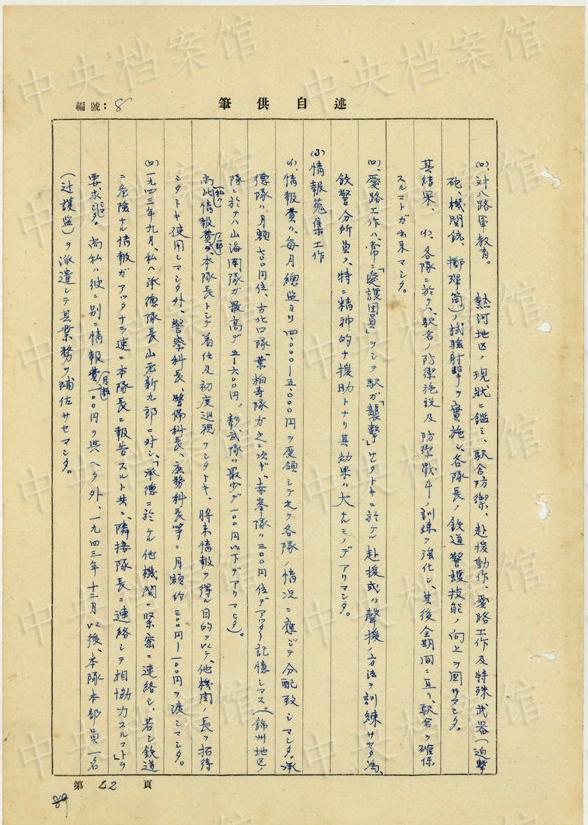 中央档案馆
編號：8
述自供筆
(四)対八路軍教育。 熱河地区ノ現状ニ鑑ミ、駅舎防禦、赴援動作、愛路工作及特殊武器(迫撃
砲、機関銃、擲弾筒)試験射撃ヲ実施シ各隊長ノ鉄道警護技能ノ向上ヲ図リマシタ。
其結果、(1)各隊ニ於テハ駅舎ノ防禦施設及防禦戦斗ノ訓練ヲ強化シ、其後全期間ニ亘リ駅舎ヲ確保
スルコトガ出来マシタ。
愛路工作ハ常ニ「愛護団員」ヲシテ駅ガ襲撃セラレタトキニ於ケル赴援或ハ聲援ノ方法ヲ訓練サセタ為、
鉄警分所員ノ特ニ精神的ナ援助トナリ其効果ハ大ナルモノデアリマシタ。
情報蒐集工作
(1)情報費ハ毎月總監ヨリ四、〇〇〇—五、〇〇〇円ヲ受領シ之ヲ各隊ノ情況ニ應ジテ分配致シマシタ。承
徳隊ハ月額七〇〇円位、古北口隊、葉柏寿隊ガ之ニ次ギ、赤峯隊ハ三〇〇円位デアッタト記憶シマス(錦州地区ノ
隊ニ於テハ山海関隊ガ最高デ五—六〇〇円、彰武隊ハ最少デ一〇〇円以下デアリマシタ)。
尚此情報費ハ本隊長トシテ着任及初度巡視ヲシタトキ、将来情報ヲ得ル目的ヲ以テ他機関ノ長ヲ招待
シタトキ使用シマシタ外、警務科長、警備科長、庶務科長等ニ月額約二〇〇円—一〇〇円ヲ渡シマシタ。
一九四三年九月、私ハ承徳隊長山岩新九郎ニ対シ、「承徳ニ於ケル他機関ト緊密ニ連絡シ、若シ鉄道
ニ危険ナル情報ガアッタナラ速ニ本隊長ニ報告スルト共ニ隣接隊長ニ連絡シテ相協力スルコト」ヲ
要求シ 尚私ハ彼ニ別ニ情報費(月額)一〇〇円ヲ与ヘタ外、一九四三年十二月以後、本隊本部員一名
(辻護監)ヲ派遣シテ其業務ヲ補佐サセマシタ。
第 22 頁